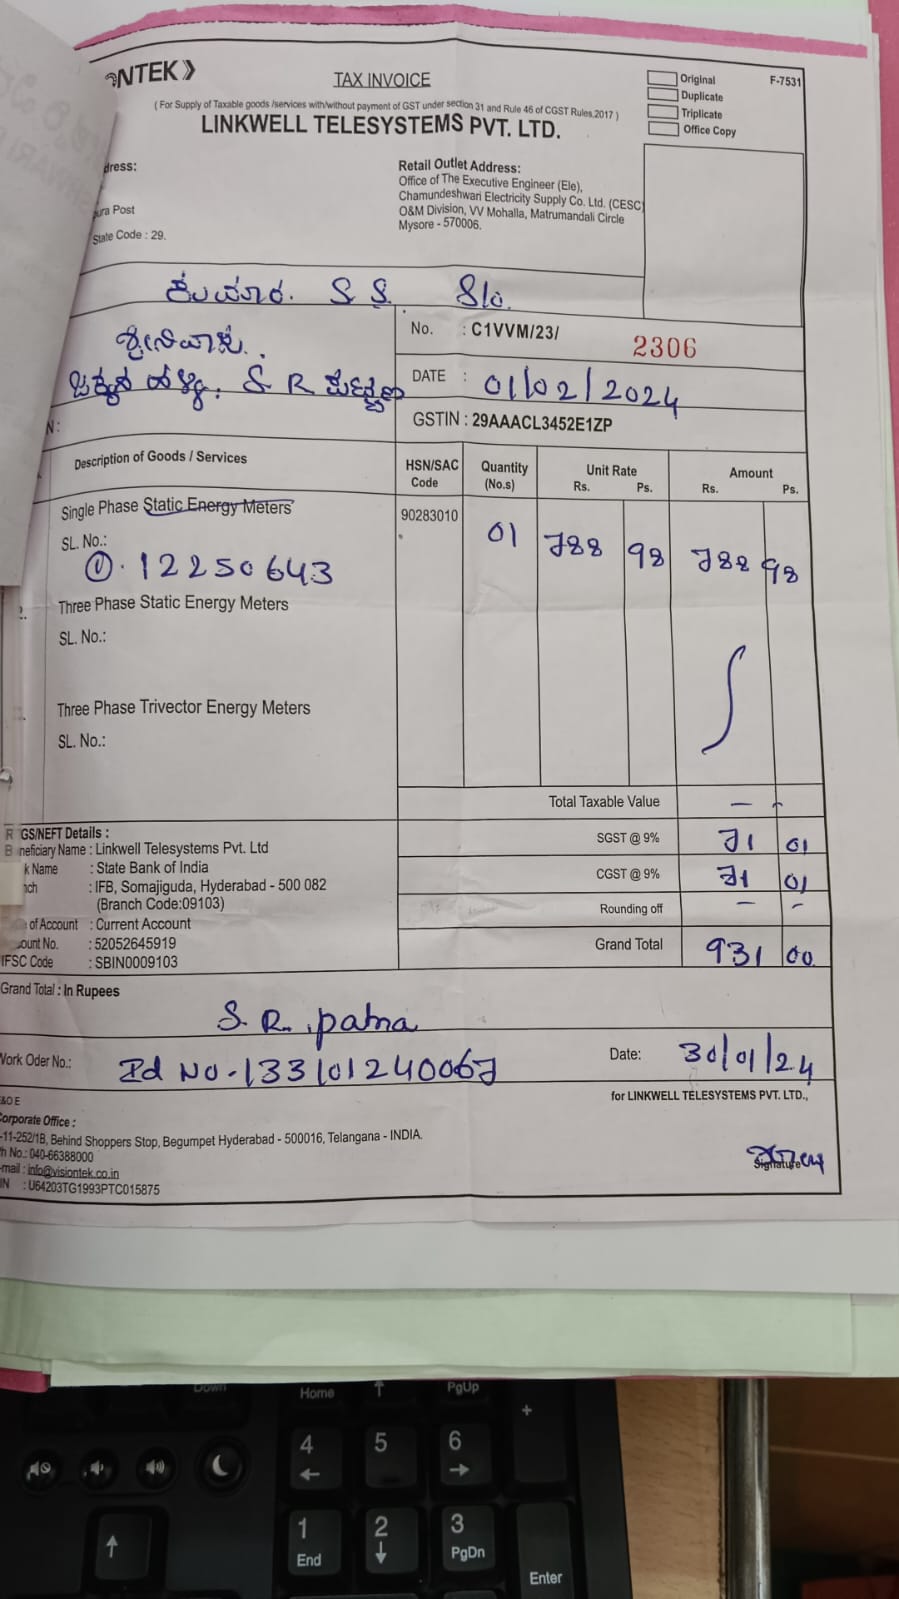 NTEK
TAX INVOICE
( For Supply of Taxable goods /services with/without payment of GST under section 31 and Rule 46 of CGST Rules.2017 )
LINKWELL TELESYSTEMS PVT. LTD.
Original
F-7531
Duplicate
Triplicate
Office Copy
dress:
Post
State Code : 29.
Retail Outlet Address:
Office of The Executive Engineer (Ele),
Chamundeshwari Electricity Supply Co. Ltd. (CESC)
O&M Division, VV Mohalla, Matrumandali Circle
Mysore - 570006.
ಕುಮಾರ. S S. S/o.
S R
No. : C1VVM/23/ 2306
DATE : 01/02/2024
N:
GSTIN : 29AAACL3452E1ZP
Description of Goods / Services
HSN/SAC Code
Quantity (No.s)
Unit Rate Rs. Ps.
Amount Rs. Ps.
Single Phase Static Energy Meters
90283010 01 788 98 788 98
SL. No.:
① . 12250643
2. Three Phase Static Energy Meters
SL. No.:
Three Phase Trivector Energy Meters
SL. No.:
Total Taxable Value — -
SGST @ 9% 71 01
CGST @ 9% 71 01
Rounding off — -
Grand Total 931 00
R GS/NEFT Details :
B neficiary Name : Linkwell Telesystems Pvt. Ltd
k Name : State Bank of India
nch : IFB, Somajiguda, Hyderabad - 500 082
(Branch Code:09103)
of Account : Current Account
ount No. : 52052645919
IFSC Code : SBIN0009103
Grand Total : In Rupees
S. R. patna
Work Oder No.: Id No-133101240067
Date: 30/01/24
for LINKWELL TELESYSTEMS PVT. LTD.,
&O E
Corporate Office :
-11-252/1B, Behind Shoppers Stop, Begumpet Hyderabad - 500016, Telangana - INDIA.
h No.: 040-66388000
-mail : info@visiontek.co.in
IN : U64203TG1993PTC015875
Signature
Down
Home
PgUp
+
4
5
6
1
End
2
3
PgDn
Enter